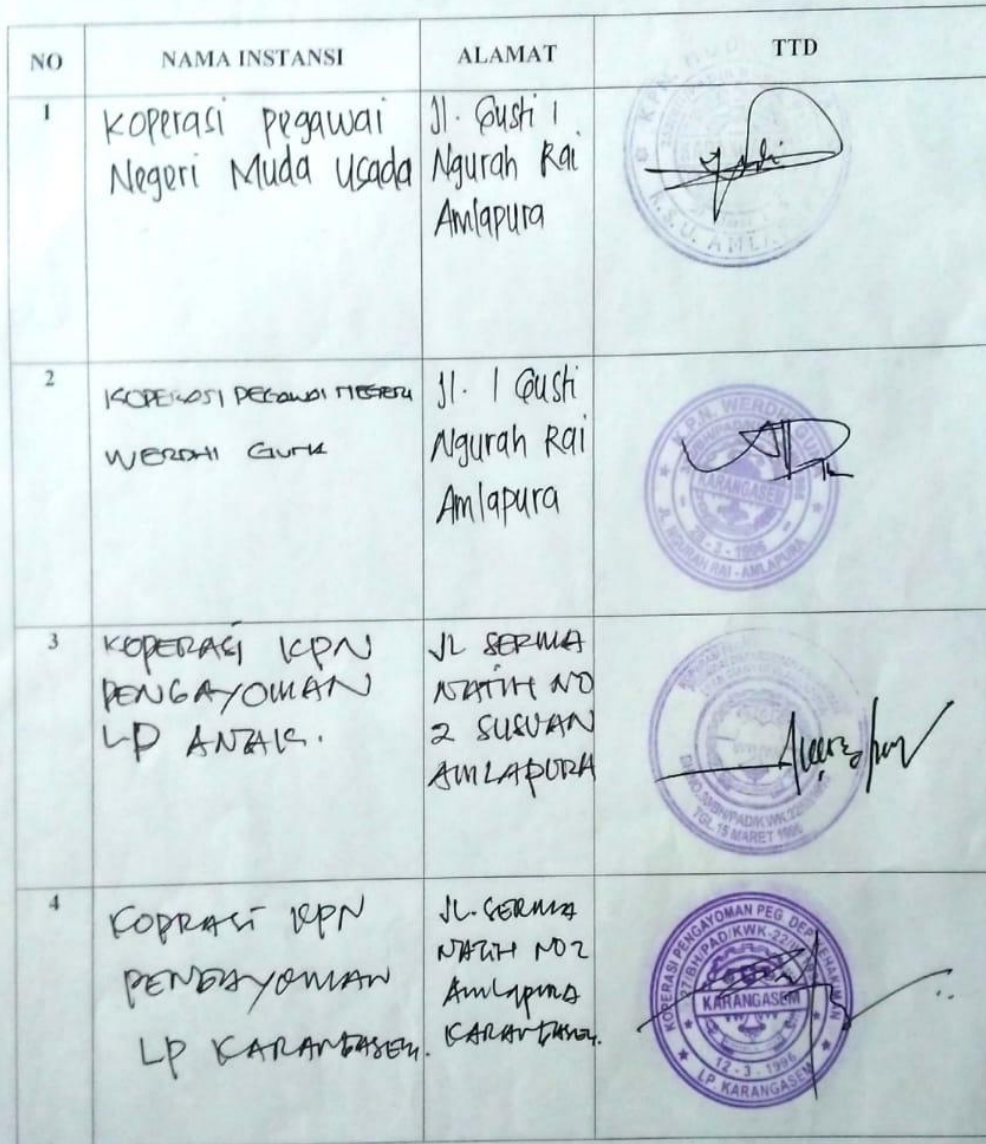 NO NAMA INSTANSI ALAMAT TTD
1
Koperasi Pegawai
Negeri Muda Usada
Jl. Gusti I
Ngurah Rai
Amlapura
R.S.U.
2
KOPERASI PEGAWAI NEGERI
WERDHI GURU
Jl. I Gusti
Ngurah Rai
Amlapura
K.P.N. WERDHI GURU
KARANGASEM
JL. NGURAH RAI - AMLAPURA
3
KOPERASI KPN
PENGAYOMAN
LP ANAK.
JL SERMA
NATIH NO
2 SUSUAN
AMLAPURA
TGL. 15 MARET
4
KOPRASI KPN
PENGAYOMAN
LP KARANGASEM.
JL. SERMA
NATIH NO 2
Amlapura
KARANGASEM.
KOPERASI PENGAYOMAN PEG. DEP. KEHAKIMAN
27/BH/PAD/KWK-22/
KARANGASEM
12-3-1996
LP. KARANGASEM